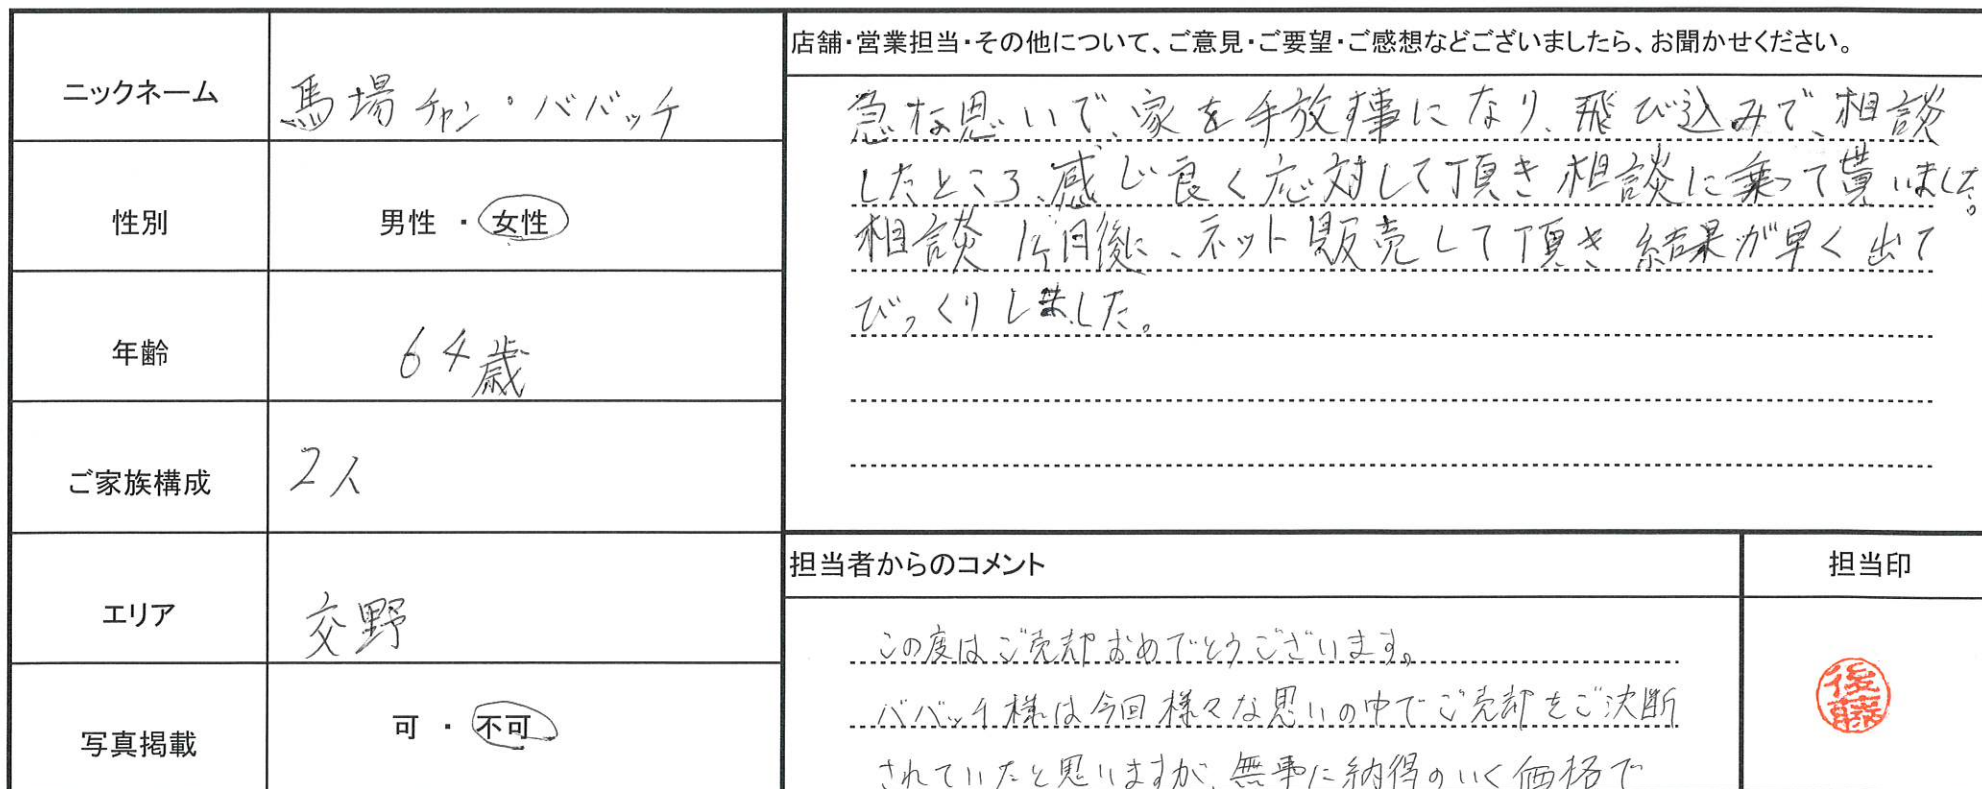 ニックネーム
馬場チャン・ババッチ
性別
男性 ・ 女性
年齢
64歳
ご家族構成
2人
エリア
交野
写真掲載
可 ・ 不可
店舗・営業担当・その他について、ご意見・ご要望・ご感想などございましたら、お聞かせください。
急な思いで、家を手放す事になり、飛び込みで、相談
したところ、感じ良く応対して頂き相談に乗って貰いました。
相談 1ヶ月後に、ネット販売して頂き 結果が早く出て
びっくりしました。
担当者からのコメント
この度はご売却おめでとうございます。
ババッチ様は今回様々な思いの中でご売却をご決断
されていたと思いますが、無事に納得のいく価格で
担当印
後藤